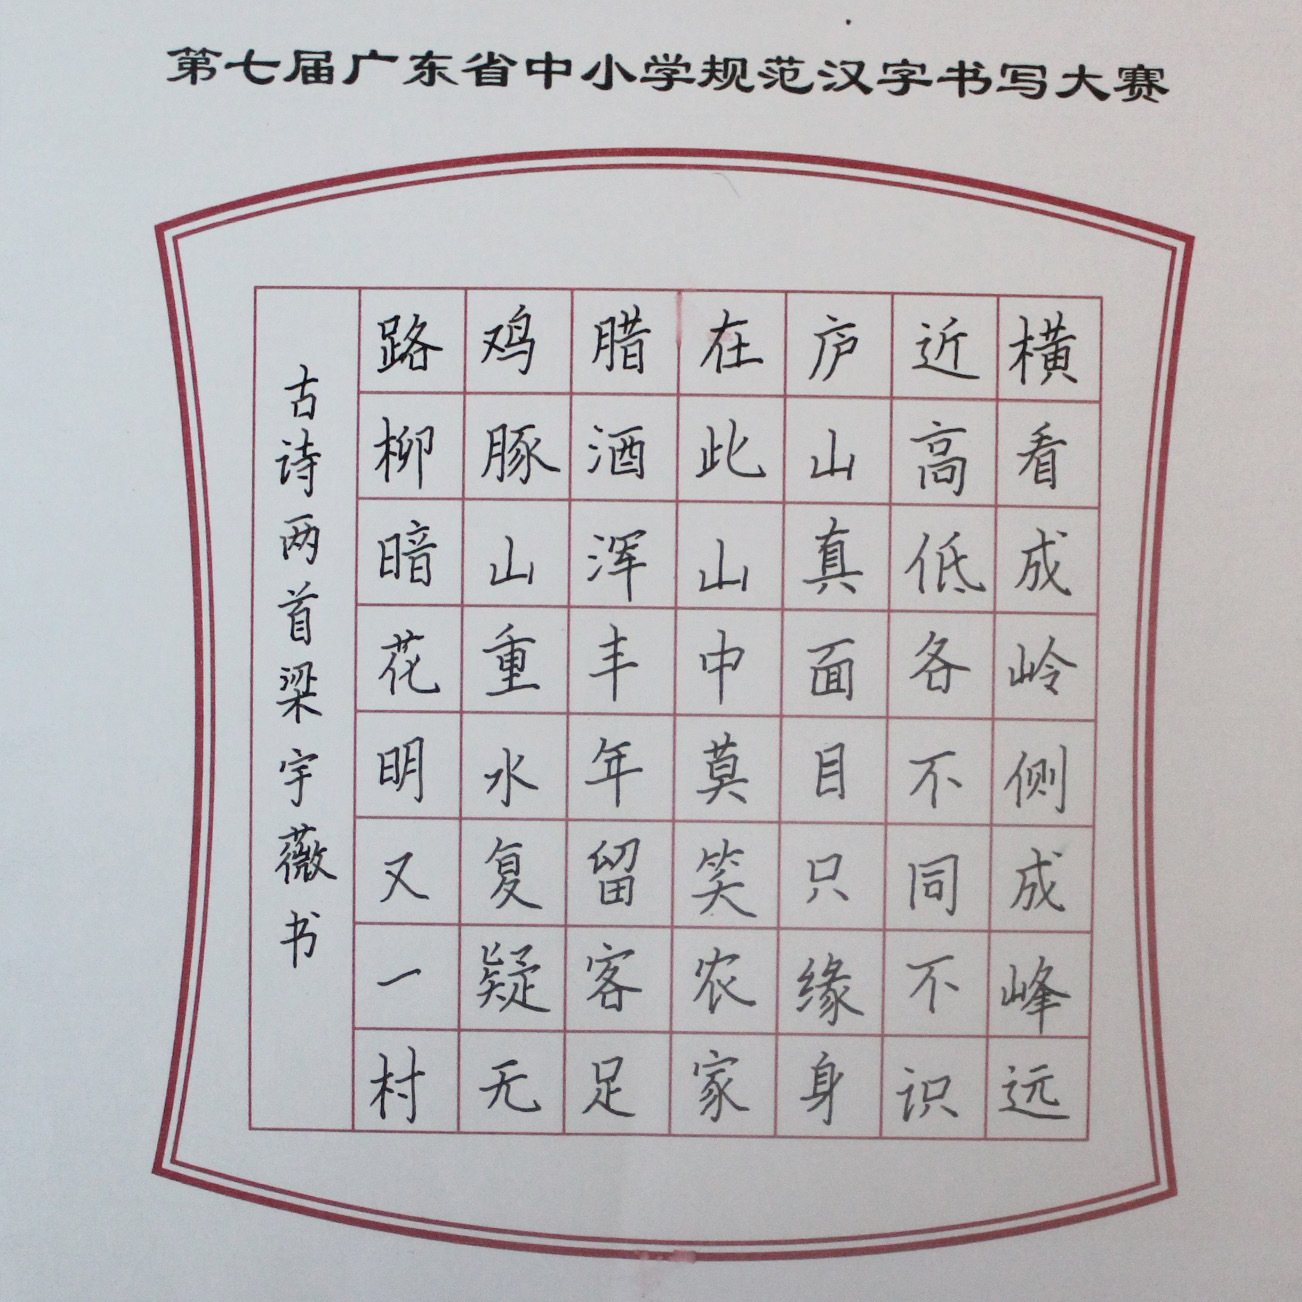 第七届广东省中小学规范汉字书写大赛
横看成岭侧成峰远
近高低各不同不识
庐山真面目只缘身
在此山中莫笑农家
腊酒浑丰年留客足
鸡豚山重水复疑无
路柳暗花明又一村
古诗两首梁宇薇书